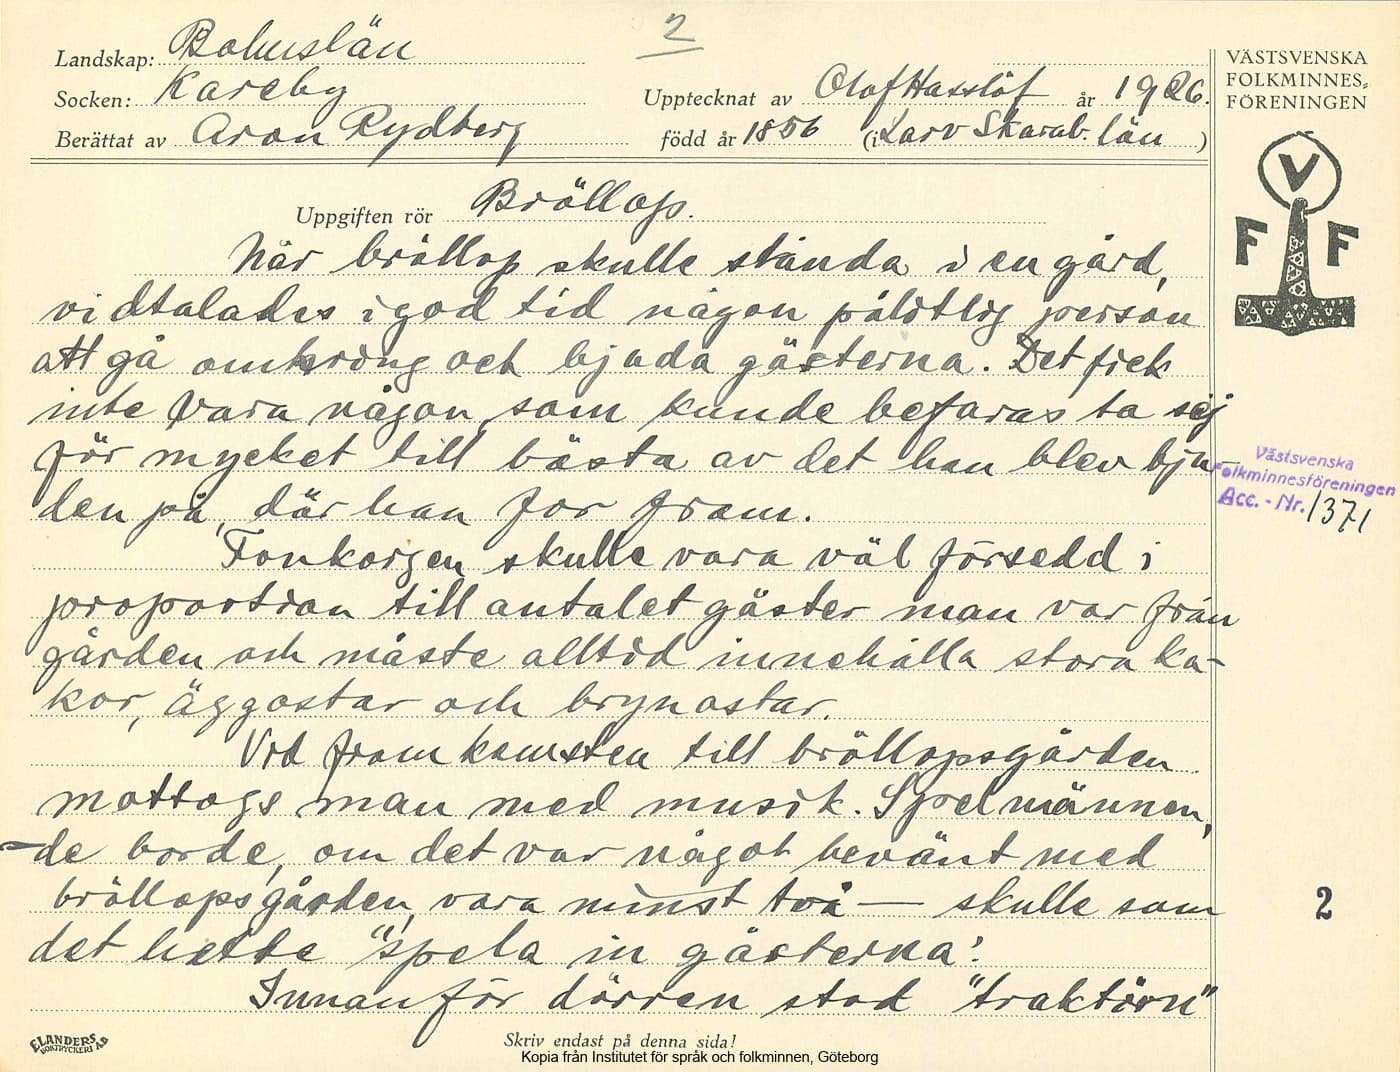 2
Landskap: Bohuslän
Socken: Kareby
Upptecknat av Olof Hasslöf år 1926.
Berättat av Aron Rydberg född år 1856 (i Larv Skarab. län)
VÄSTSVENSKA
FOLKMINNES=
FÖRENINGEN
V
F F
Uppgiften rör Bröllop.
När bröllop skulle stånda i en gård,
vidtalades i god tid någon pålitlig person
att gå omkring och bjuda gästerna. Det fick
inte vara någon, som kunde befaras ta sig
för mycket till bästa av det han blev bju-
den på, där han for fram.
Västsvenska
Folkminnesföreningen
Acc. - Nr. 1371
Fonkorgen skulle vara väl försedd i
proportion till antalet gäster man var från
gården och måste alltid innehålla stora ka-
kor, äggostar och brynostar.
Vid framkomsten till bröllopsgården
mottogs man med musik. Spelmännen,
- de borde, om det var något bevänt med
bröllopsgården, vara minst två — skulle som
2
det hette "spela in gästerna".
Innanför dörren stod "traktörn"
ELANDERS
BOKTRYCKERI AB
Skriv endast på denna sida!
Kopia från Institutet för språk och folkminnen, Göteborg